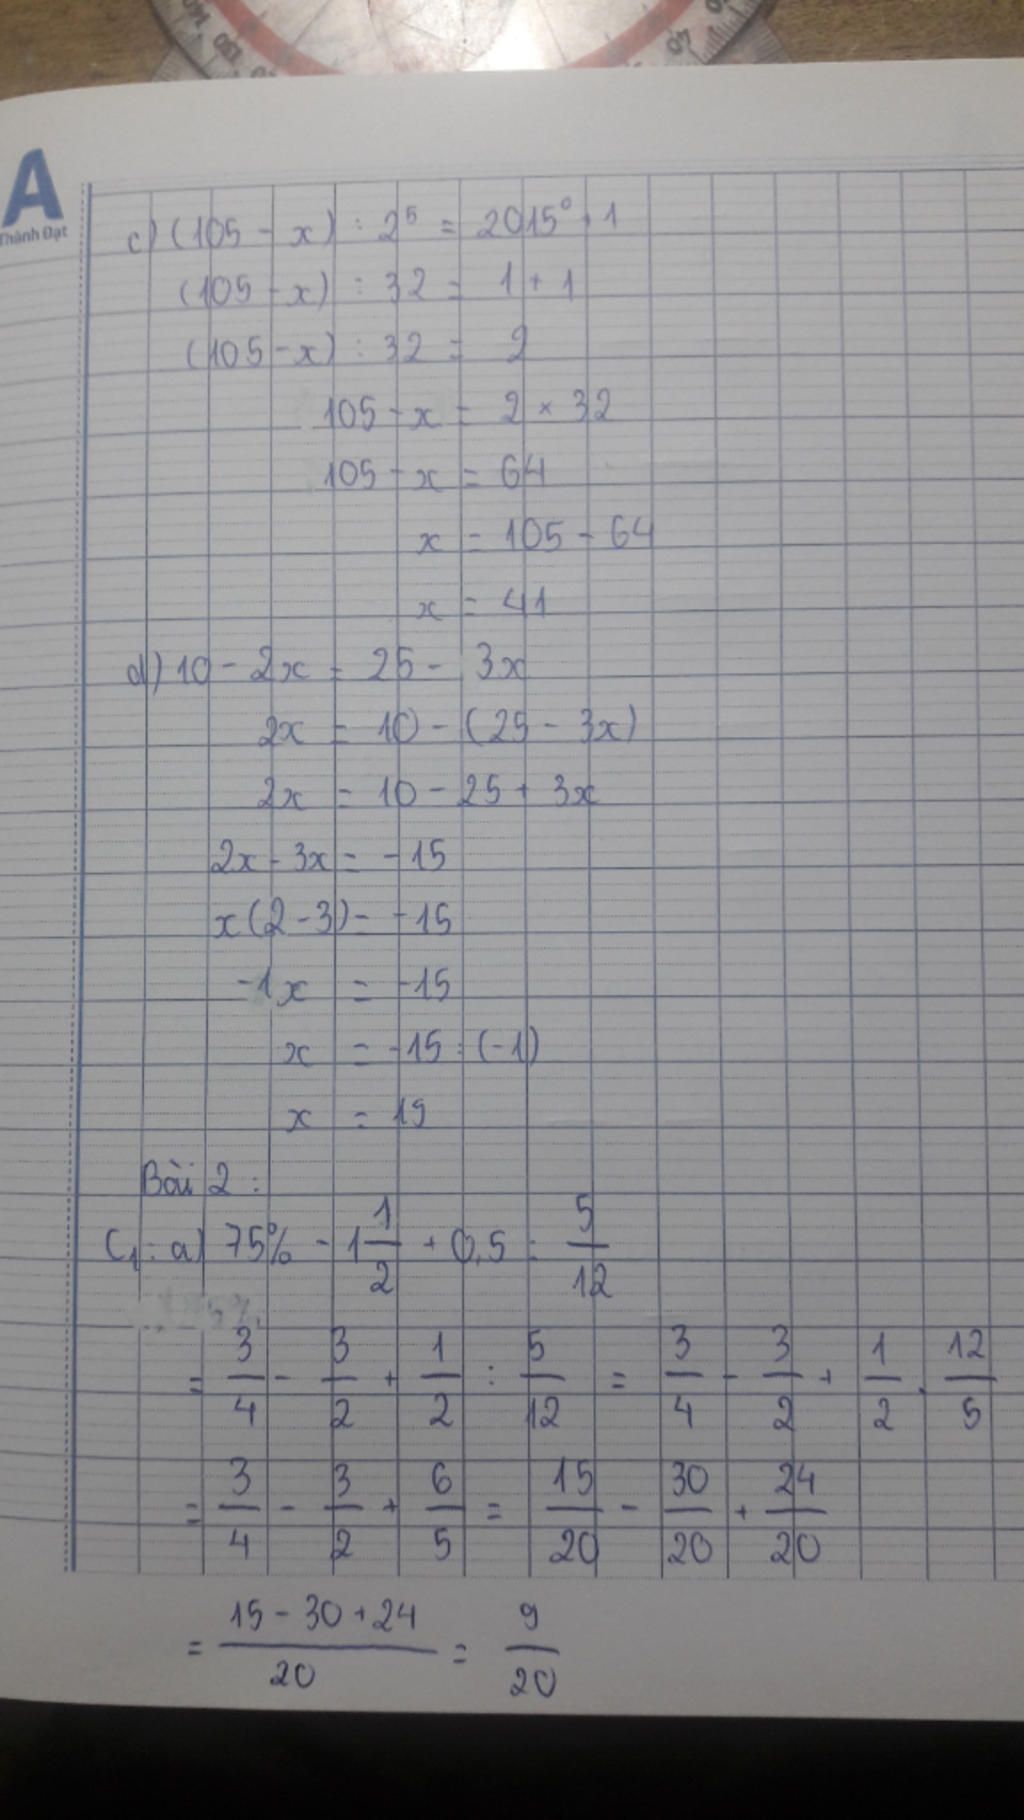 A
Thành Đạt
c) (105 - x) : 2⁵ = 2015⁰ + 1
(105 - x) : 32 = 1 + 1
(105 - x) : 32 = 2
105 - x = 2 × 32
105 - x = 64
x = 105 - 64
x = 41
d) 10 - 2x = 25 - 3x
2x = 10 - (25 - 3x)
2x = 10 - 25 + 3x
2x - 3x = -15
x(2 - 3) = -15
-1x = -15
x = -15 : (-1)
x = 15
Bài 2 :
C₁ : a) 75% - 1 1/2 + 0,5 : 5/12
= 3/4 - 3/2 + 1/2 : 5/12 = 3/4 - 3/2 + 1/2 . 12/5
= 3/4 - 3/2 + 6/5 = 15/20 - 30/20 + 24/20
= 15 - 30 + 24/20 = 9/20